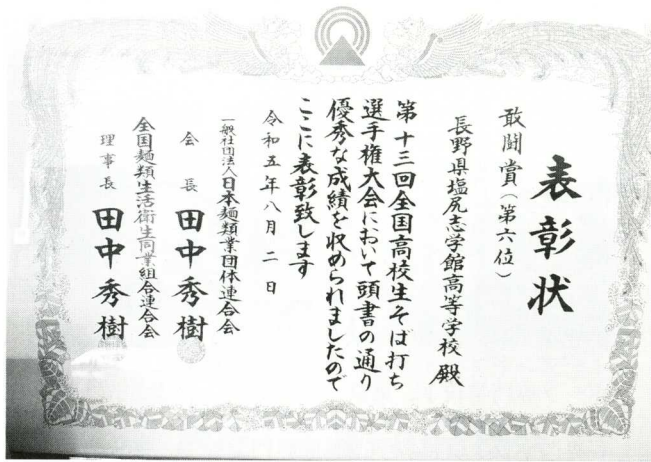 表彰状
敢闘賞（第六位）
長野県塩尻志学館高等学校 殿
第十三回全国高校生そば打ち
選手権大会において頭書の通り
優秀な成績を収められましたので
ここに表彰致します
令和五年八月二日
一般社団法人日本麺類業団体連合会
会長 田中秀樹
全国麺類生活衛生同業組合連合会
理事長 田中秀樹